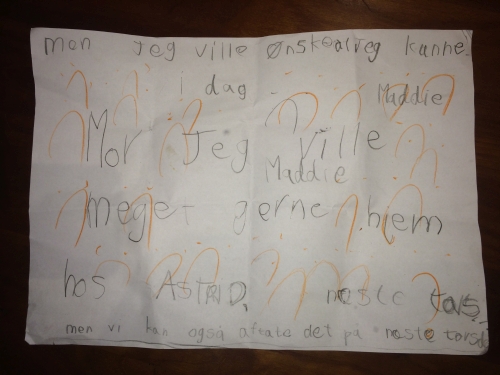 men Jeg ville ønske at Jeg kunne
i dag
Maddie
Mor Jeg ville
Maddie
meget gerne hjem
hos ASTRID. næste tors
men vi kan også aftale det på næste torsd